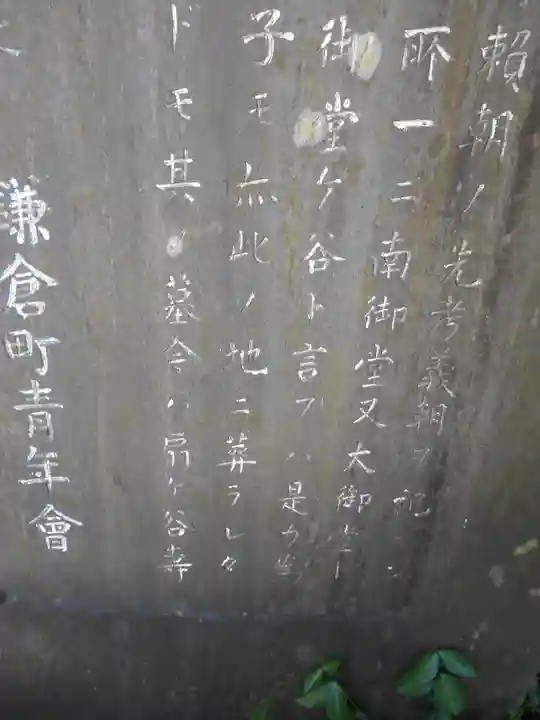 頼朝ノ先考義朝ヲ祀
所一ニ南御堂又大御堂ト
御堂ケ谷ト言フハ是
子モ亦此ノ地ニ葬ラレタ
ドモ其ノ墓今ハ扇ケ谷寿
鎌倉町青年會